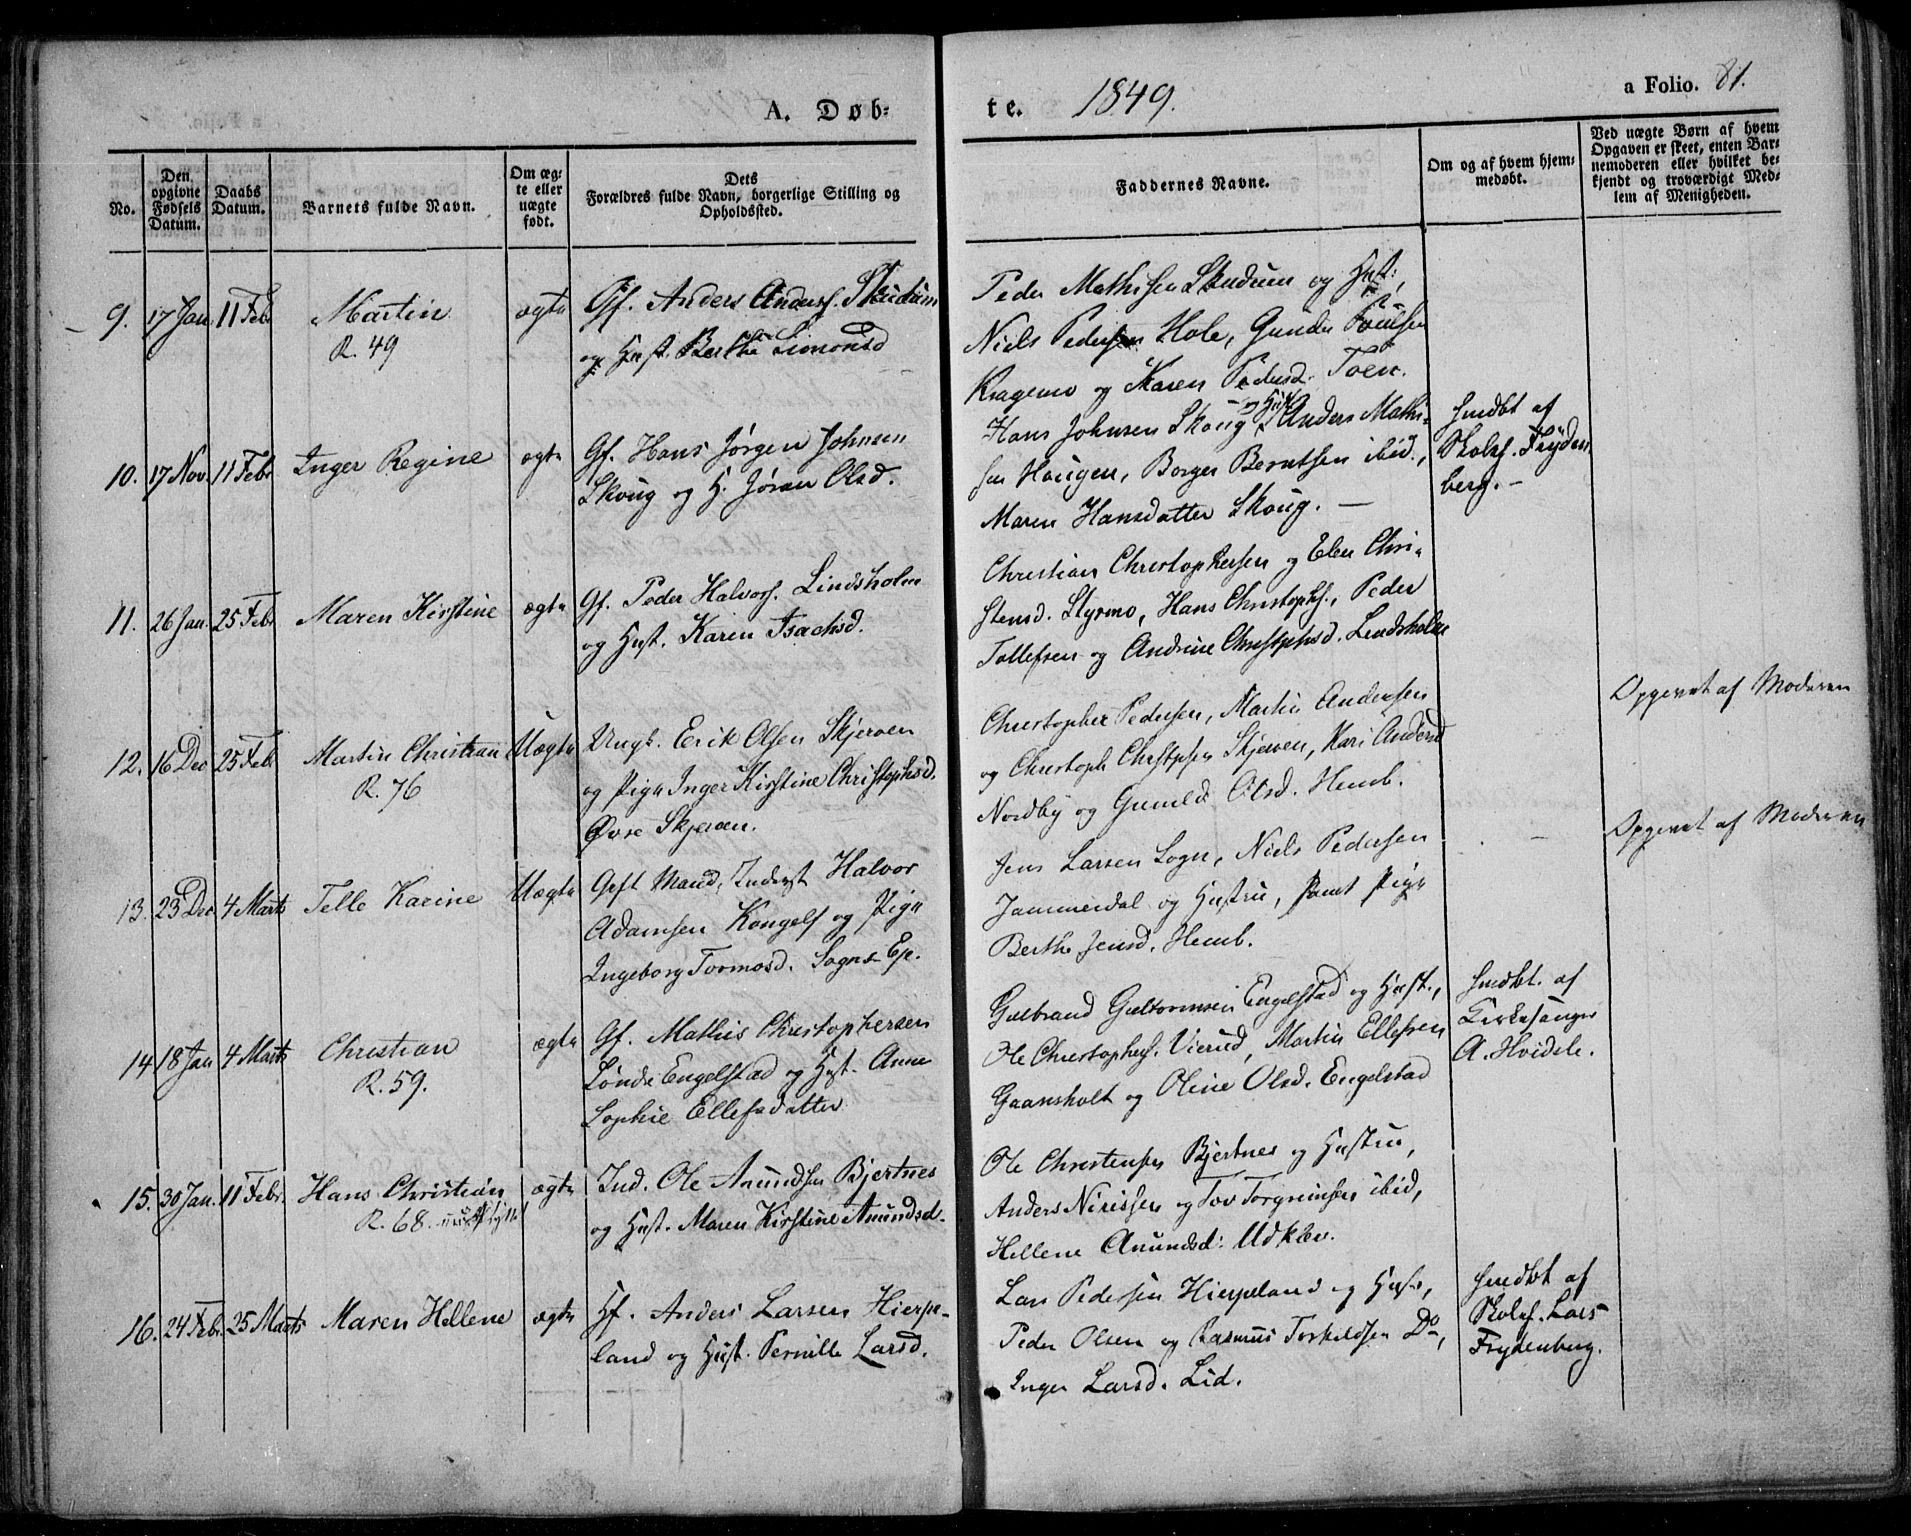 A. Døb-
te. 1849.
a Folio. 81.
No.
Den opgivne Fødsels Datum.
Daabs Datum.
Barnets fulde Navn.
Om ægte eller uægte født.
Dets Forældres fulde Navn, borgerlige Stilling og Opholdssted.
Faddernes Navne.
Om og af hvem hjemmedøbt.
Ved uægte Børn af hvem Opgaven er skeet, enten Barnemoderen eller hvilket bekjendt og troværdigt Medlem af Menigheden.
9. 17 Jan 11 Feb Martin ægte Gf. Anders Anders. Skudum
R. 49 og Hust. Berthe Simonsd
Peder Mathisen Skudum og Hust.
Niels Pedersen Hole, Gunder Poulsen
Kragemo og Karen Pedersd. Toen.
10. 17 Nov. 11 Febr Inger Regine ægte Gf. Hans Jørgen Johnsen
Skoug og H. Jøran Olsd.
Hans Johnsen Skoug og Hust, Anders Mathi-
sen Hougen, Borger Berntsen ibid.,
Maren Hansdatter Skoug. —
hmdbt af
Skolef. Fryden
berg. -
11. 26 Jan. 25 Febr Maren Kirstine ægte Gf. Peder Halvors. Lindsholm
og Hust. Karen Isachsd.
Christian Christophersen og Elen Chri-
stensd. Styrmo, Hans Christophs., Peder
Tollefsen og Andrine Christophsd. Lindsholm
12. 16 Dec 25 Feb Martin Christian Uægte Ungk. Erik Olsen Skjerven
R. 76 og Pige Inger Kirstine Christophsd.
Øvre Skjerven.
Christopher Pedersen, Martin Andersen
og Christoph Christophsen Skjerven, Kari Andersd
Nordby og Gunild Olsd. Hemb.
Opgivet af Moderen
13. 23 Dec 4 Marts Telle Karine Uægte Gift Mand, Inderst Halvor
Adamsen Kongelf og Pige
Ingeborg Tormosd. Sogns Ej.
Jens Larsen Sogn, Niels Pedersen
Jammerdal og Hustru, samt Pige
Berthe Jensd. Hemb.
Opgivet af Moderen
14 18 Jan 4 Marts Christian ægte Gf. Mathis Christophersen
R. 59. Søndre Engelstad og Hust. Anne
Sophie Ellefsdatter
Gulbrand Guttormsen Engelstad og Hust.,
Ole Christophers. Vierud, Martin Ellefsen
Gaansholt og Oline Olsd. Engelstad
hmdbt. af
Kirkesanger
A. Hvidele.
15. 30 Jan. 11 Febr. Hans Christian ægte Ind. Ole Amundsen Bjertnes
R. 68. og Hust. Maren Kirstine Amundsd.
Ole Christensen Bjertnes og Hustru,
Anders Nirissen og Tov Torgrimsen ibid,
Hellene Amundsd. Udklev.
16. 24 Feb. 25 Marts Maren Hellene ægte Hf. Anders Larsen Hierpe-
land og Hust. Pernille Larsd.
Lars Pedersen Hierpeland og Hust,
Peder Olsen og Rasmus Torkildsen Do,
Inger Larsd. Lid.
hmdbt af
Skolef. Lars
Frydenberg.